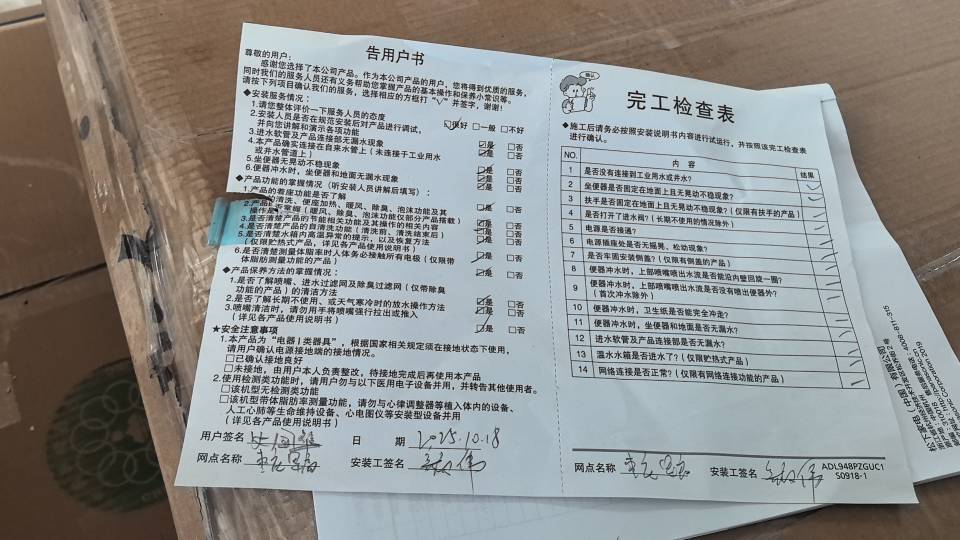 告用户书
尊敬的用户：
感谢您选择了本公司产品。作为本公司产品的用户，您将得到优质的服务，
同时我们的服务人员还有义务帮助您掌握产品的基本操作和保养小常识等。
请按下列项目确认我们的服务，选择相应的方框打“√”并签字，谢谢！
◆安装服务情况：
1.请您整体评价一下服务人员的态度 ☑很好 □一般 □不好
2.安装人员是否在规范安装后对产品进行调试，
并向您讲解和演示各项功能 ☑是 □否
3.进水软管及产品连接部无漏水现象 ☑是 □否
4.本产品确实连接在自来水管上（未连接于工业用水
或井水管道上） ☑是 □否
5.坐便器无晃动不稳现象 ☑是 □否
6.便器冲水时，坐便器和地面无漏水现象 ☑是 □否
◆产品功能的掌握情况（听安装人员讲解后填写）：
1.产品的着座功能是否了解 ☑是 □否
清洗、便座加热、暖风、除臭、泡沫功能及其
（暖风、除臭、泡沫功能仅部分产品搭载） ☑是 □否
3.是否清楚产品的节能相关功能及其操作的相关内容 ☑是 □否
4.是否清楚产品的自清洗功能（清洗前、清洗结束后） ☑是 □否
5.是否清楚水箱内高温异常的提示，以及恢复方法
（仅限贮热式产品，详见各产品使用说明书） □是 □否
6.是否清楚测量体脂率时人体务必接触所有电极（仅限带
体脂肪测量功能的产品） ☑是 □否
◆产品保养方法的掌握情况：
1.是否了解喷嘴、进水过滤网及除臭过滤网（仅带除臭
功能的产品）的清洁方法 ☑是 □否
2.是否了解长期不使用、或天气寒冷时的放水操作方法 ☑是 □否
3.喷嘴清洁时，请勿用手将喷嘴强行拉出或推入
（详见各产品使用说明书） ☑是 □否
★安全注意事项
1.本产品为“电器Ⅰ类器具”，根据国家相关规定须在接地状态下使用，
请用户确认电源接地端的接地情况。
□已确认接地良好
□未接地，由用户本人负责整改，待接地完成后再使用本产品
2.使用检测类功能时，请用户勿与以下医用电子设备并用，并转告其他使用者。
□该机型无检测类功能
□该机型带体脂肪率测量功能，请勿与心律调整器等植入体内的设备、
人工心肺等生命维持设备、心电图仪等安装型设备并用
（详见各产品使用说明书）
用户签名 日 期 2025.10.18
网点名称 安装工签名
确认
完工检查表
◆施工后请务必按照安装说明书内容进行试运行，并按照该完工检查表
进行确认。
NO. 内 容 结果
1 是否没有连接到工业用水或井水？
2 坐便器是否固定在地面上且无晃动不稳现象？
3 扶手是否固定在地面上且无晃动不稳现象？（仅限有扶手的产品）
4 是否打开了进水阀？（长期不使用的情况除外）
5 电源是否接通？
6 电源插座处是否无摇晃、松动现象？
7 是否牢固安装侧盖？（仅限有侧盖的产品）
8 便器冲水时，上部喷嘴喷出水流是否能沿内壁回旋一圈？
9 便器冲水时，上部喷嘴喷出水流是否没有喷出便器外？
（首次冲水除外）
10 便器冲水时，卫生纸是否能完全冲走？
11 便器冲水时，坐便器和地面是否无漏水？
12 进水软管及产品连接部是否无漏水？
13 温水水箱是否进水了？（仅限贮热式产品）
14 网络连接是否正常？（仅限有网络连接功能的产品）
网点名称 安装工签名
ADL948PZGUC1
S0918-1